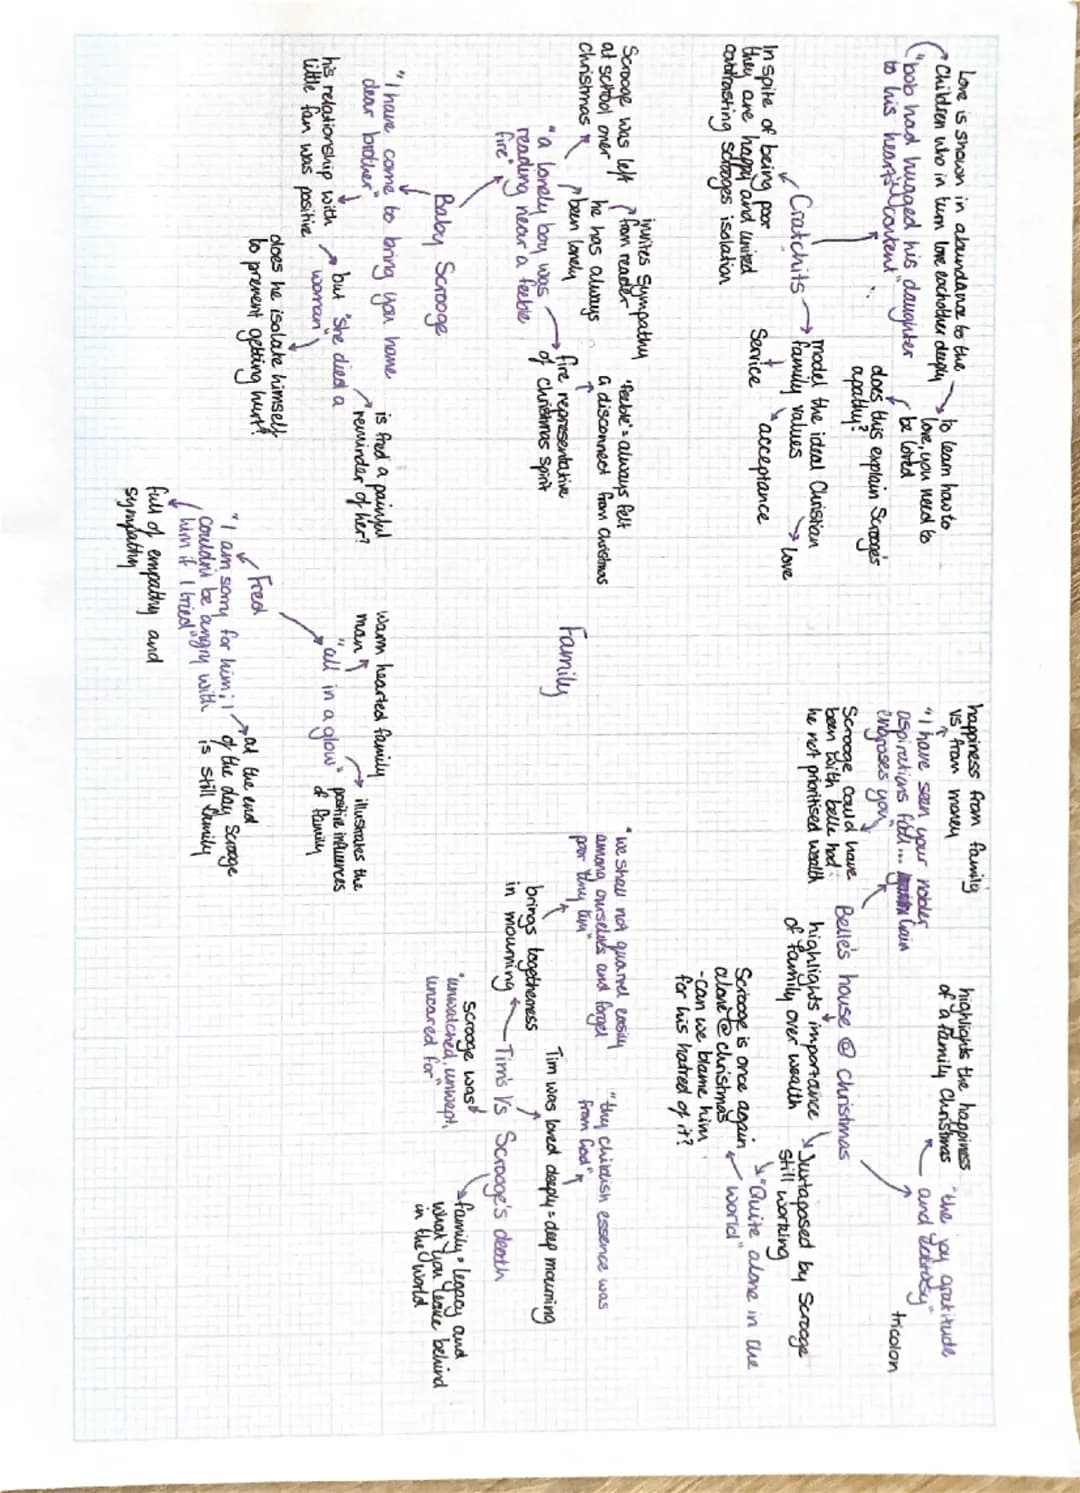 Love is shown in abundance to the
Children who in turn love eachother deeply
"bob had hugged his daughter
to his heart's content"
to learn how to
love, you need to
be loved
does this explain Scrooge's
apathy?
Cratchits
model the ideal Christian
family values
love
Service
acceptance
In spite of being poor
they are happy and united
contrasting scrooges isolation
Scrooge was left
at school over
christmas
invites sympathy
from reader
he has always
been lonely
"a lonely boy was
reading near a feeble
fire"
'feeble' = always felt
a disconnect from Christmas
fire representative
of christmas spirit
Baby Scrooge
"I have come to bring you home
dear brother"
his relationship with
little fan was positive
but "she died a
woman"
is fred a painful
reminder of her?
does he isolate himself
to prevent getting hurt?
Family
happiness from family
vs from money
"I have seen your nobler
aspirations fall... Gain
engrosses you"
Scrooge could have
been with belle had
he not prioritised wealth
Belle's house @ christmas
highlights the happiness
of a family Christmas
"the joy gratitude
and
tricolon
highlights importance
of family over wealth
Juxtaposed by Scrooge
still working
"Quite alone in the
world"
Scrooge is once again
alone @ christmas
- can we blame him
for his hatred of it?
"we shall not quarrel easily
among ourselves and forget
poor tiny tim"
brings togetherness
in mourning
"thy childish essence was
from God"
Tim was loved deeply = deep mourning
Tim's Vs Scrooge's death
scrooge was
"unwatched, unwept,
uncared for"
family = legacy and
what you leave behind
in the world
warm hearted family
man
"all in a glow"
illustrates the
positive influences
of family
Fred
"I am sorry for him; I
couldn't be angry with
him if I tried"
at the end
of the day Scrooge
is still family
full of empathy and
sympathy